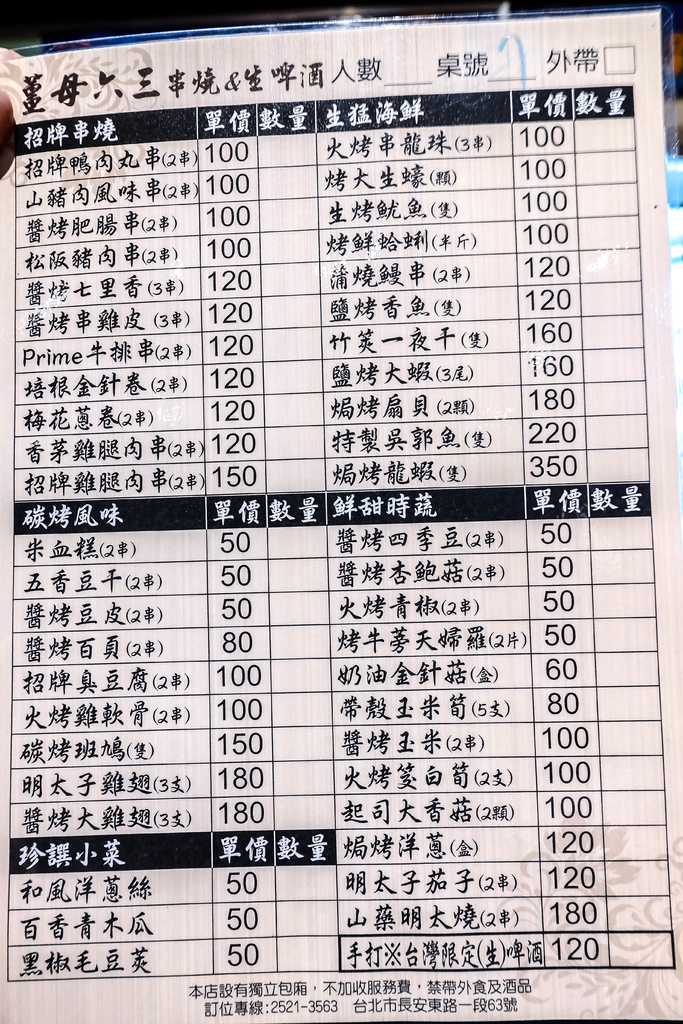 薑母六三串燒&生啤酒 人數 桌號 7 外帶
招牌串燒 單價 數量
招牌鴨肉丸串(2串) 100
山豬肉風味串(2串) 100
醬烤肥腸串(2串) 100
松阪豬肉串(2串) 100
醬烤七里香(3串) 120
醬烤串雞皮(3串) 120
Prime牛排串(2串) 120
培根金針卷(2串) 120
梅花蔥卷(2串) 120
香茅雞腿肉串(2串) 120
招牌雞腿肉串(2串) 150
碳烤風味 單價 數量
米血糕(2串) 50
五香豆干(2串) 50
醬烤豆皮(2串) 50
醬烤百頁(2串) 80
招牌臭豆腐(2串) 100
火烤雞軟骨(2串) 100
碳烤班鳩(隻) 150
明太子雞翅(3支) 180
醬烤大雞翅(3支) 180
珍饌小菜 單價 數量
和風洋蔥絲 50
百香青木瓜 50
黑椒毛豆莢 50
生猛海鮮 單價 數量
火烤串龍珠(3串) 100
烤大生蠔(顆) 100
生烤魷魚(隻) 100
烤鮮蛤蜊(半斤) 100
蒲燒鰻串(2串) 120
鹽烤香魚(隻) 120
竹筴一夜干(隻) 160
鹽烤大蝦(3尾) 160
焗烤扇貝(2顆) 180
特製吳郭魚(隻) 220
焗烤龍蝦(隻) 350
鮮甜時蔬 單價 數量
醬烤四季豆(2串) 50
醬烤杏鮑菇(2串) 50
火烤青椒(2串) 50
烤牛蒡天婦羅(2片) 50
奶油金針菇(盒) 60
帶殼玉米筍(5支) 80
醬烤玉米(2串) 100
火烤筊白筍(2支) 100
起司大香菇(2顆) 100
焗烤洋蔥(盒) 120
明太子茄子(2串) 120
山藥明太燒(2串) 180
手打※台灣限定(生)啤酒 120
本店設有獨立包廂，不加收服務費，禁帶外食及酒品
訂位專線:2521-3563 台北市長安東路一段63號